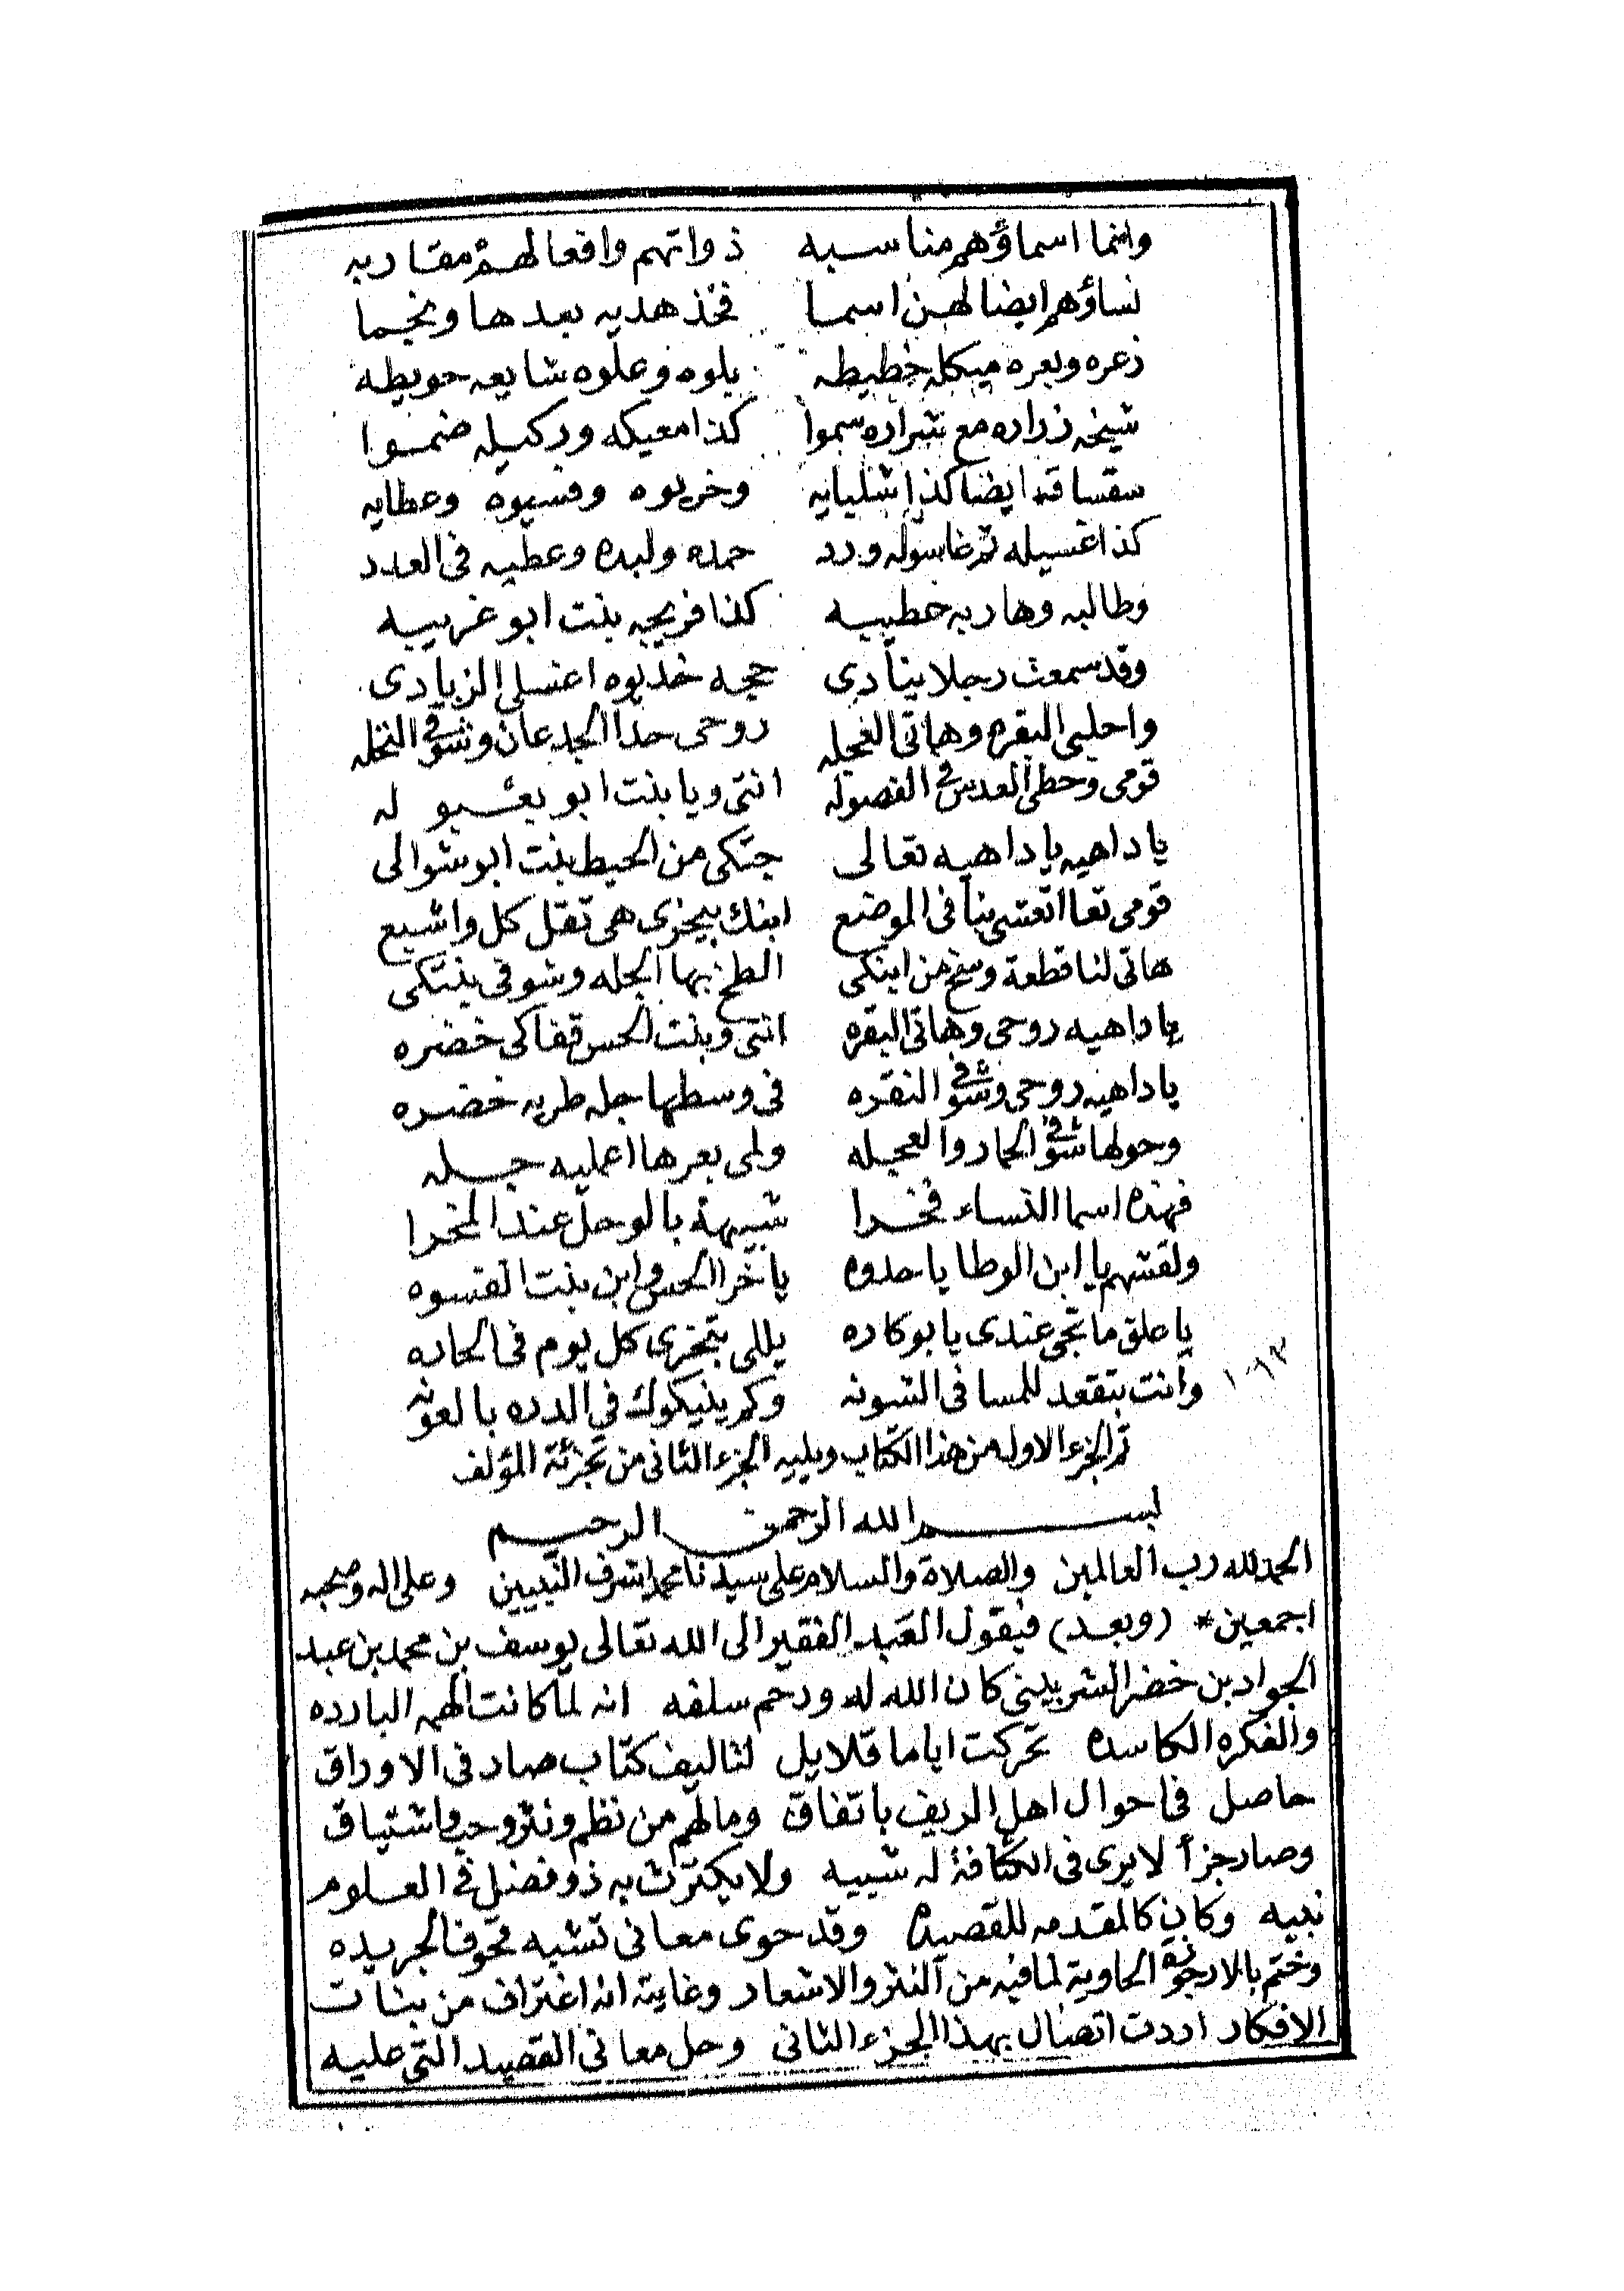 وانما اسماؤهم مناسبه ذواتهم وافعالهم مقاربه
نساؤهم ايضا لهن اسما فخذ هديه بعدها ونجما
زعره وبعره ميكله خطيطه يلوه وعلوه شايعه حويطه
شيخه زراره مع شراره سموا كذا معيكه وركيله ضموا
سقساقه ايضا كذا شليايه وخريوه وفسيوه وعطايه
كذا غسيله ثم غاسوله ورد حمده ولبده وعطيه فى العدد
وطالبه وهاربه حطيبه كذا فريجه بنت ابو غريبه
وقد سمعت رجلا ينادى حجه خديوه اغسلى الزبادى
واحلبى البقره وهاتى العجله روحى حدا الجدعان وشوفى النخله
قومى وحطى العدس فى الفصوله انتى ويا بنت ابو بعشبو له
يا داهيه يا داهيه تعالى جتكى من الحيط بنت ابو شوالى
قومى تعا اتعشى بنا فى الموضع ابنك بيخرى هى تقل كل واشبع
هاتى لنا قطعة وسخ من ابنكى الطخ بها الجله وشوفى بنتكى
يا داهيه روحى وهاتى البقره انتى وبنت الحس قفاكى خضره
يا داهيه روحى وشوفى النقره فى وسطها جله طريه خضره
وحولها شوفى الحمار والعجله ولمى بعرها اعمليه جله
فهذه اسما النساء فخرا شبيهة بالوحل عند المخرا
ولقشهم يا ابن الوطا يا حدوه يا خرا الحس وابن بنت القسوه
يا علق ما تجى عندى يا بو كاره يللى بتخرى كل يوم فى الحاره
وانت بتقعد للمسا فى الشونه وكم ينيكوك فى الدره بالعونه
١٠٦٣
تم الجزء الاول من هذا الكتاب ويليه الجزء الثانى من تجزئة المؤلف
بسم الله الرحمن الرحيم
الحمد لله رب العالمين والصلاة والسلام على سيدنا محمد اشرف النبيين وعلى اله وصحبه
اجمعين * (وبعد) فيقول العبد الفقير الى الله تعالى يوسف بن محمد بن عبد
الجواد بن خضر الشربينى كان الله له ورحم سلفه انه لما كانت الهمه البارده
والفكره الكاسده تحركت اياما قلايل لتاليف كتاب صار فى الاوراق
حاصل فى احوال اهل الريف باتفاق وما لهم من نظم ونثر وحب واشتياق
وصار جزأ لا يرى فى الكثافة له شبيه ولا يكترث به ذو فضل فى العلوم
نبيه وكان كالمقدمه للقصيده وقد حوى معانى تشبه قحوف الجريده
وختم بالارجوزة الحاوية لما فيه من النثر والاشعار وغايته انه اغتراف من بنات
الافكار اردت اتصال بهذا الجزء الثانى وحل معانى القصيد التى عليه